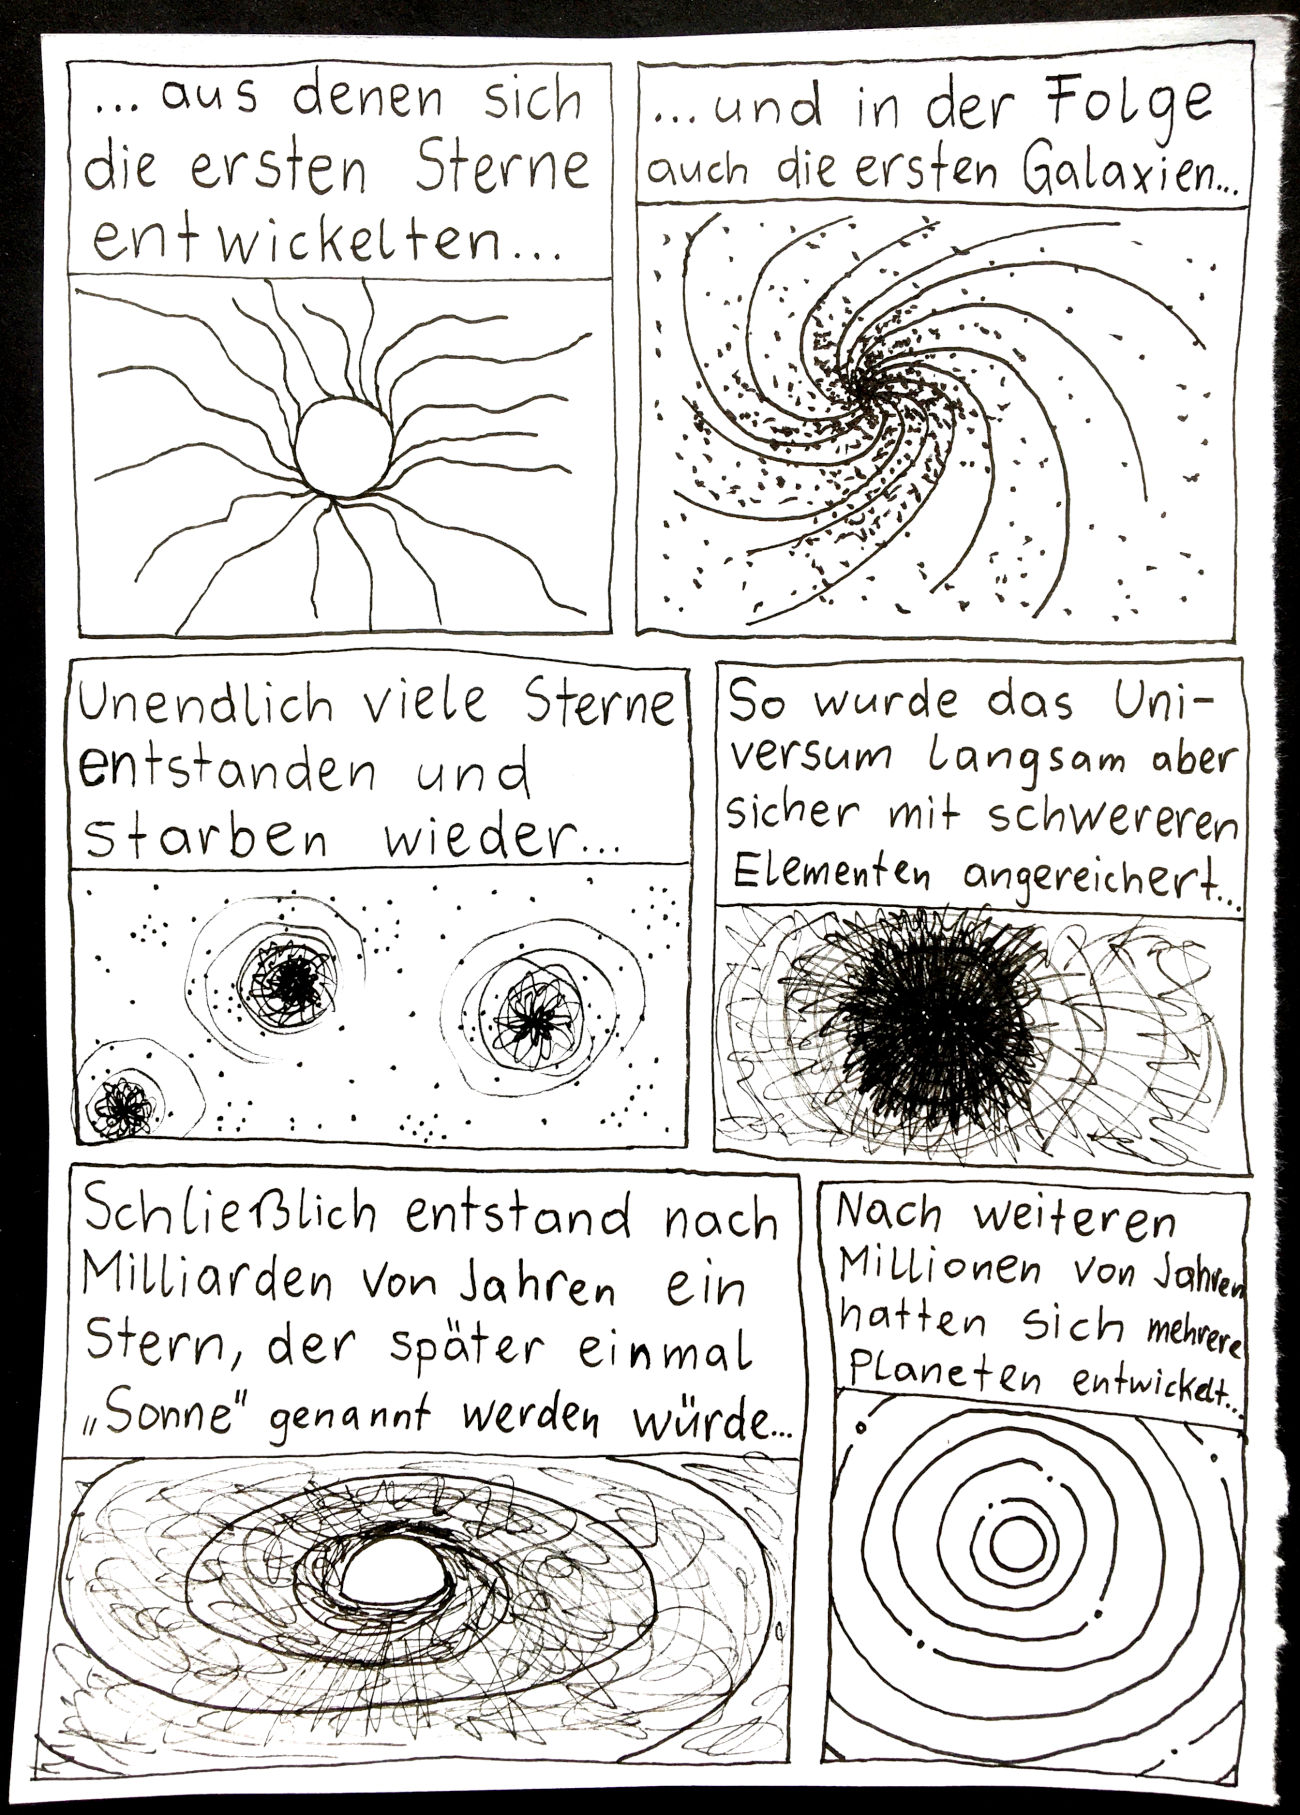 ...aus denen sich
die ersten Sterne
entwickelten...
...und in der Folge
auch die ersten Galaxien...
Unendlich viele Sterne
entstanden und
starben wieder...
So wurde das Uni-
versum langsam aber
sicher mit schwereren
Elementen angereichert...
Schließlich entstand nach
Milliarden von Jahren ein
Stern, der später einmal
„Sonne" genannt werden würde...
Nach weiteren
Millionen von Jahren
hatten sich mehrere
Planeten entwickelt...